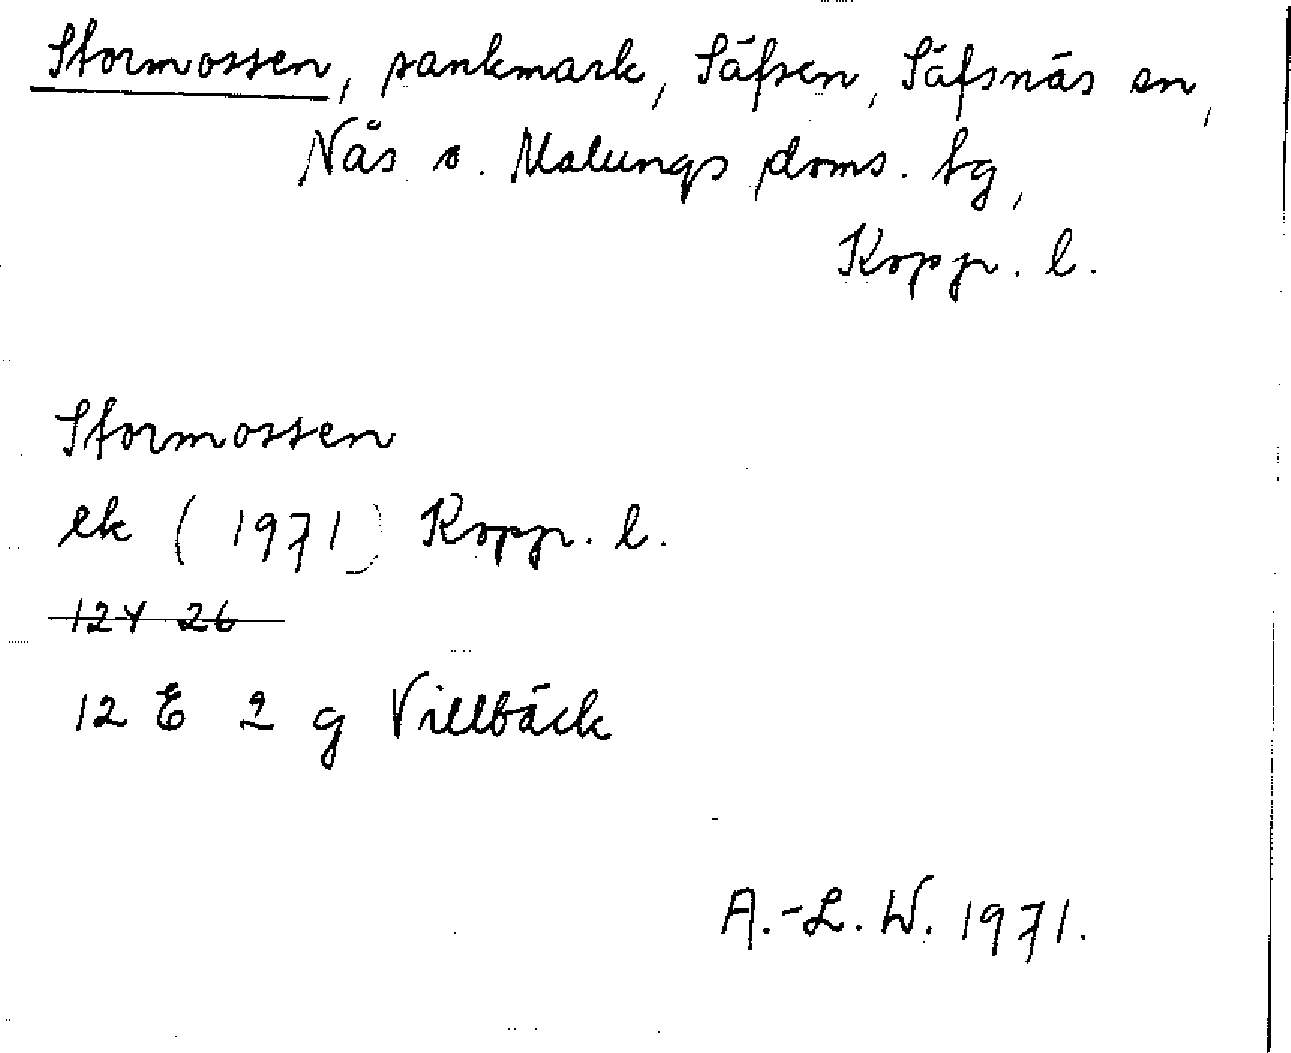 Stormossen, sankmark, Säfsen, Säfsnäs sn,
Nås o. Malungs doms. tg,
Kopp. l.
Stormossen
ek (1971) Kopp. l.
12Y 26
12 E 2 g Villbäck
A.-L. W. 1971.